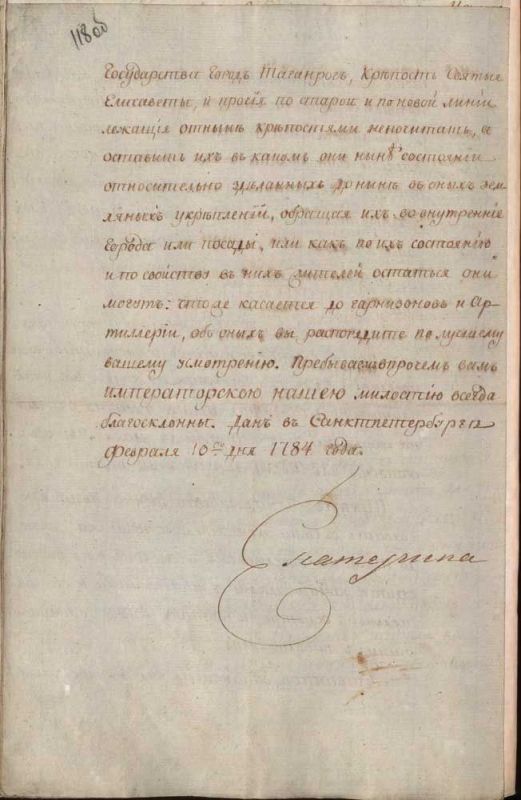 118об
Государства городъ Таганрогъ, Крѣпость Святыя
Елисаветы, и прочія по старой и по новой линіи
лежащія отнынѣ крѣпостями непочитать, а
оставить ихъ въ какомъ они нынѣ состояніи
относительно зделанныхъ донынѣ въ оныхъ зем-
ляныхъ укрѣпленій, обращая ихъ во внутренніе
города или посады, или какъ по ихъ состоянію
и по свойству въ нихъ жителей остаться они
могутъ: чтоже касается до гарнизоновъ и Ар-
тиллеріи, объ оныхъ вы распорядите по лучшему
вашему усмотренію. Пребываемъ впрочемъ вамъ
императорскою нашею милостію всегда
благосклонны. Данъ въ Санктпетербургѣ
Февраля 10го дня 1784 года.
Екатерина